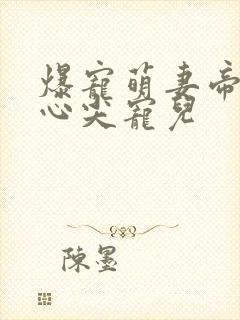 爆寵萌妻帝
心尖寵兒
陳墨